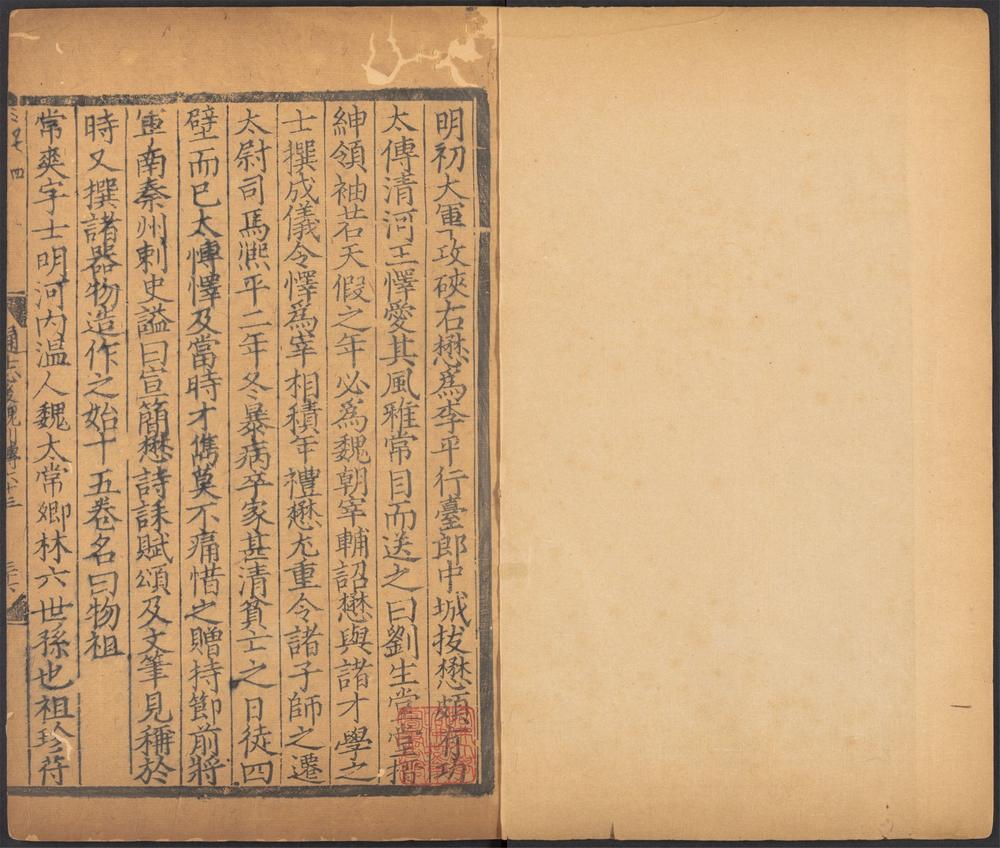 明初大軍攻硤石懋爲李平行臺郎中城拔懋頗有功
太傅清河王懌愛其風雅常目而送之曰劉生堂堂搢
紳領袖若天假之年必爲魏朝宰輔詔懋與諸才學之
士撰成儀令懌爲宰相積年禮懋尤重令諸子師之遷
太尉司馬熈平二年冬暴病卒家甚清貧亡之日徒四
壁而已太傅懌及當時才雋莫不痛惜之贈持節前將
軍南秦州刺史謚曰宣簡懋詩誄賦頌及文筆見稱於
時又撰諸器物造作之始十五卷名曰物祖
常爽字士明河内温人魏太常卿林六世孫也祖珍苻
通志後魏傳六十三